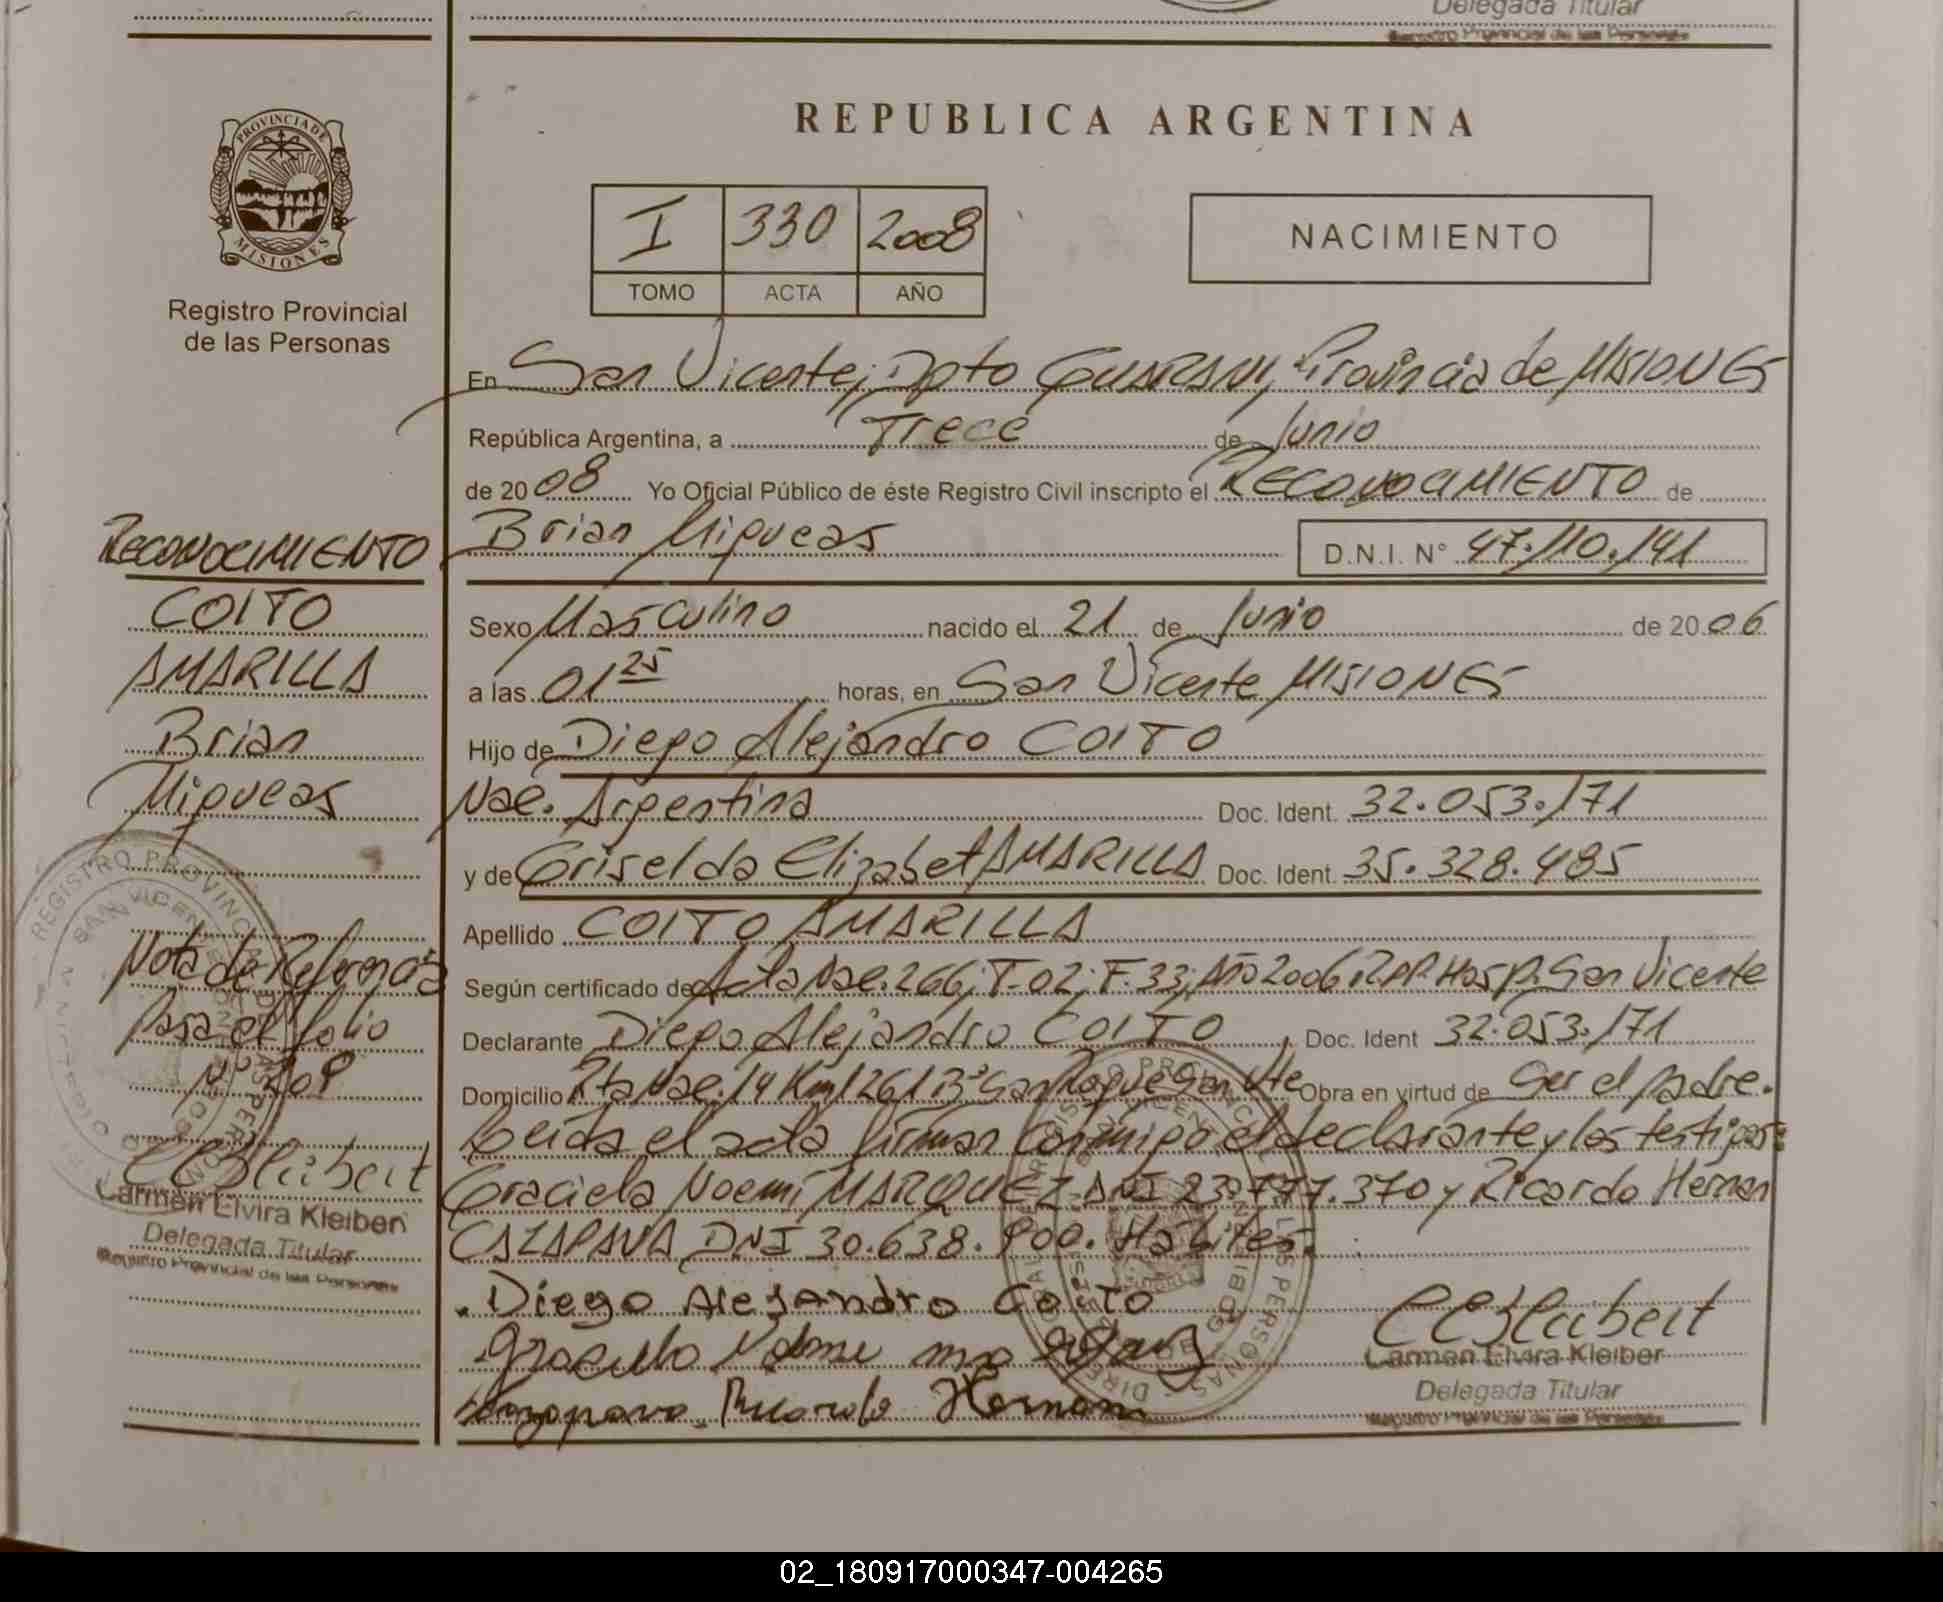 Delegada Titular
Registro Provincial de las Personas
PROVINCIA DE
MISIONES
Registro Provincial
de las Personas
REPUBLICA ARGENTINA
I 330 2008
TOMO ACTA AÑO
NACIMIENTO
En San Vicente, Dpto GUARANI, Provincia de MISIONES
República Argentina, a Trece de Junio
de 2008 Yo Oficial Público de éste Registro Civil inscripto el RECONOCIMIENTO de
Brian Miqueas D.N.I. N° 47.110.141
Sexo Masculino nacido el 21 de Junio de 2006
a las 01 25 horas, en San Vicente MISIONES
Hijo de Diego Alejandro COITO
Nac. Argentina Doc. Ident. 32.053.171
y de Griselda Elizabet AMARILLA Doc. Ident. 35.328.485
Apellido COITO AMARILLA
Según certificado de Acta Nac. 266; T-02; F.33; Año 2006 RPP. Hosp. San Vicente
Declarante Diego Alejandro COITO Doc. Ident 32.053.171
Domicilio Rta Nac. 14 Km 1261 B° San Roque San Vte Obra en virtud de Ser el padre.
Leida el acta firman conmigo el declarante y los testigos:
Graciela Noemi MARQUEZ DNI 23.777.370 y Ricardo Hernan
CAZAPAVA DNI 30.638.900. Habiles.
Diego Alejandro Coito
Hernan
CEKleibert
Carmen Elvira Kleiber
Delegada Titular
Registro Provincial de las Personas
RECONOCIMIENTO
COITO
AMARILLA
Brian
Miqueas
Nota de Referencia
Pasa al folio
N° 209
CEKleibert
Carmen Elvira Kleiber
Delegada Titular
Registro Provincial de las Personas
REGISTRO PROVINCIAL DE LAS PERSONAS
SAN VICENTE
02_180917000347-004265